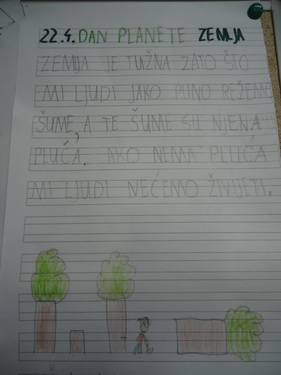 22.4. DAN PLANETE ZEMJA
ZEMJA JE TUŽNA ZATO ŠTO
MI LJUDI JAKO PUNO REŽEMO
ŠUME A TE ŠUME SU NJENA
PLUĆA. AKO NEMA PLUĆA
MI LJUDI NEĆEMO ŽIVJETI.